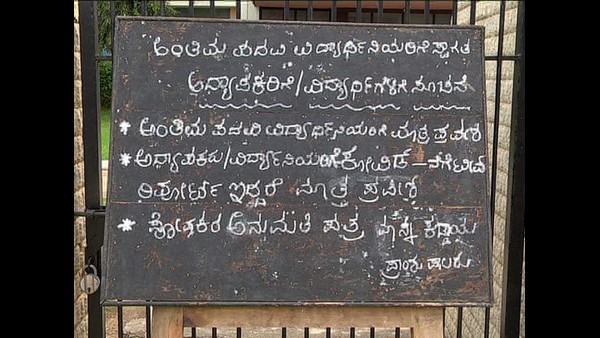 ಅಂತಿಮ ಪದವಿ ವಿದ್ಯಾರ್ಥಿನಿಯರಿಗೆ ಸ್ವಾಗತ
ಅಧ್ಯಾಪಕರಿಗೆ/ವಿದ್ಯಾರ್ಥಿಗಳಿಗೆ ಸೂಚನೆ
* ಅಂತಿಮ ಪದವಿ ವಿದ್ಯಾರ್ಥಿನಿಯರಿಗೆ ಮಾತ್ರ ಪ್ರವೇಶ
* ಅಧ್ಯಾಪಕರು/ವಿದ್ಯಾರ್ಥಿನಿಯರಿಗೆ ಕೋವಿಡ್ - ನೆಗೆಟೀವ
ರಿಪೋರ್ಟ್ ಇದ್ದರೆ ಮಾತ್ರ ಪ್ರವೇಶ
* ಪೋಷಕರ ಅನುಮತಿ ಪತ್ರ ಕಡ್ಡಾಯ
ಪ್ರಾಂಶುಪಾಲರು